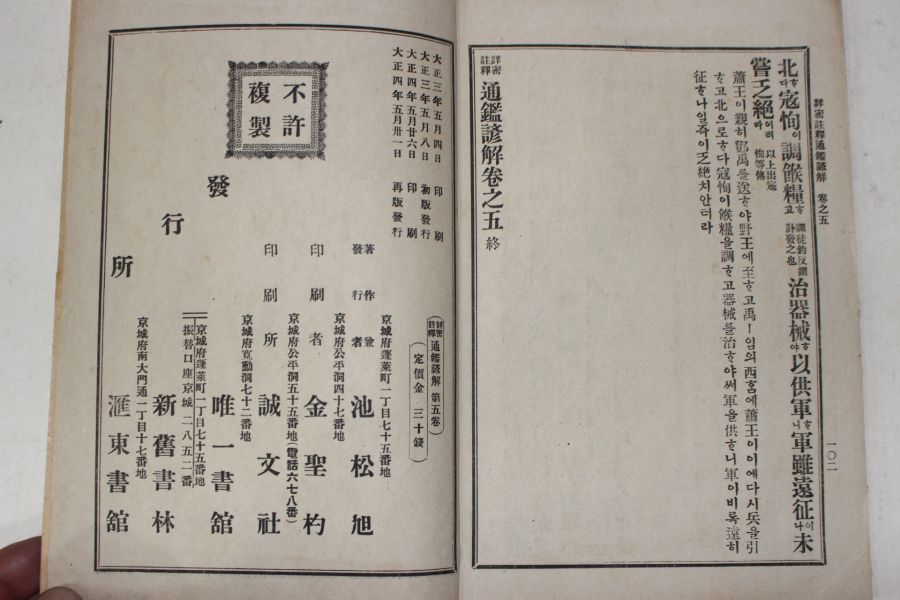 詳密註釋通鑑諺解 卷之五
一〇二
北ᄒᆞ다寇恂이調餱糧ᄒᆞ고 調徒釣反謂計發之也 治器械ᄒᆞ야以供軍ᄒᆞ니軍雖遠征이나未
嘗乏絶이러라 以上出寇恂等傳
蕭王이親히鄧禹를送ᄒᆞ야野王에至ᄒᆞ고禹ㅣ임의西홈에蕭王이이에다시兵을引
ᄒᆞ고北으로ᄒᆞ다寇恂이餱糧을調ᄒᆞ고器械를治ᄒᆞ야써軍을供ᄒᆞ니軍이비록遠히
征ᄒᆞ나일즉이乏絶치안터라
詳密註釋 通鑑諺解卷之五 終
大正三年五月四日 印刷
大正三年五月八日 初版發行
大正四年五月廿六日 印刷
大正四年五月卅一日 再版發行
不許複製
詳密註釋 通鑑諺解 第五卷
定價金 三十錢
京城府蓬萊町一丁目七十五番地
著作兼發行者 池松旭
京城府公平洞四十七番地
印刷者 金聖杓
京城府公平洞五十五番地(電話六七八番)
印刷所 誠文社
京城府寬勳洞七十二番地
發行所
唯一書館
京城府蓬萊町一丁目七十五番地
振替口座京城二八五二番
新舊書林
京城府南大門通一丁目十七番地
滙東書館